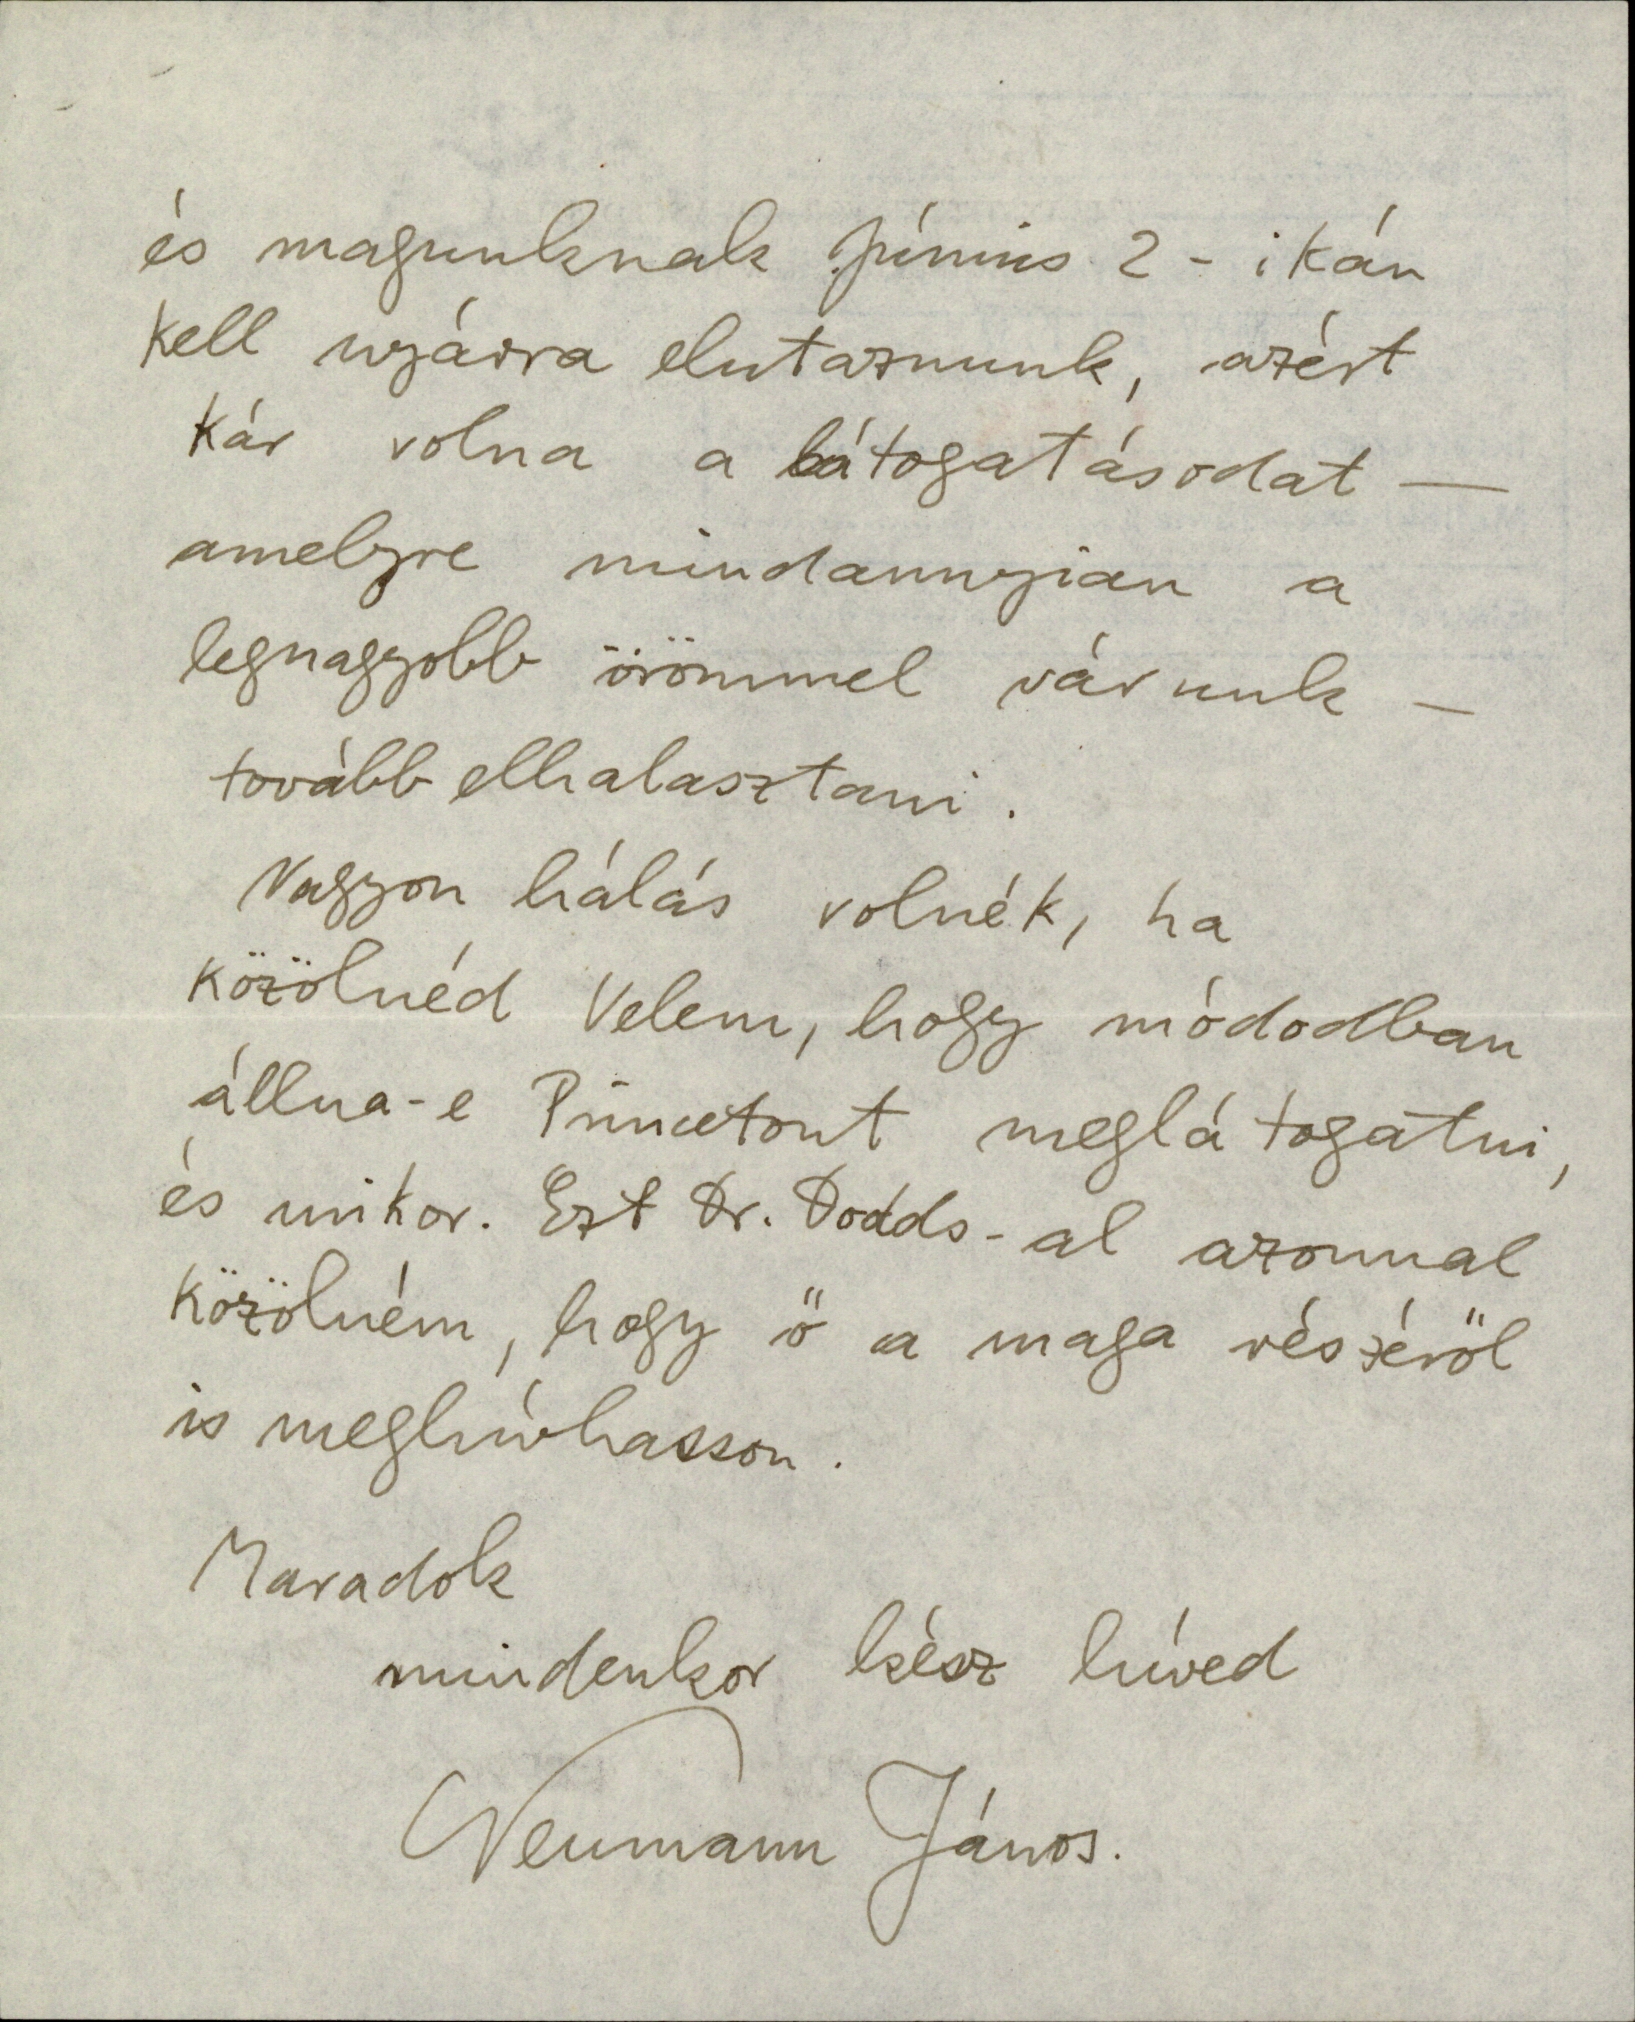 és magunknak június 2-ikán
kell nyárra elutaznunk, azért
kár volna a látogatásodat —
amelyre mindannyian a
legnagyobb örömmel várunk —
tovább elhalasztani.
Nagyon hálás volnék, ha
közölnéd Velem, hogy módodban
állna-e Princetont meglátogatni,
és mikor. Ezt Dr. Dodds-al azonnal
közölném, hogy ő a maga részéről
is meghívhasson.
Maradok
mindenkor kész híved
Neumann János.